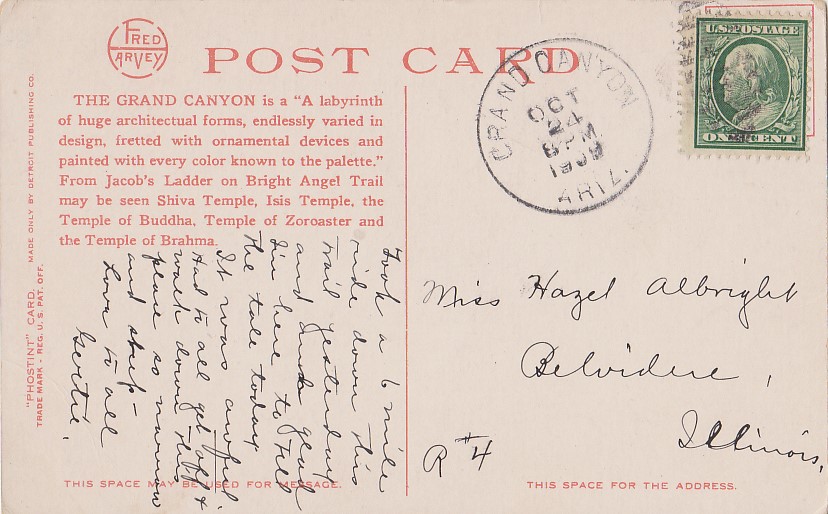 FRED
HARVEY
POST CARD
THE GRAND CANYON is a “A labyrinth
of huge architectual forms, endlessly varied in
design, fretted with ornamental devices and
painted with every color known to the palette.”
From Jacob's Ladder on Bright Angel Trail
may be seen Shiva Temple, Isis Temple, the
Temple of Buddha, Temple of Zoroaster and
the Temple of Brahma.
"PHOSTINT" CARD. MADE ONLY BY DETROIT PUBLISHING CO.
TRADE MARK - REG. U.S. PAT. OFF.
Took a 6 mile
ride down this
trail yesterday
and glad
I'm here to tell
the tale today
It was awful.
Had to all get off &
walk down this
place so narrow
and steep -
Love to all
Gertie.
THIS SPACE MAY BE USED FOR MESSAGE.
GRAND CANYON
OCT
24
8 PM
1909
ARIZ.
U.S. POSTAGE
ONE CENT
Miss Hazel Albright
Belvidere,
Illinois,
R #4
THIS SPACE FOR THE ADDRESS.